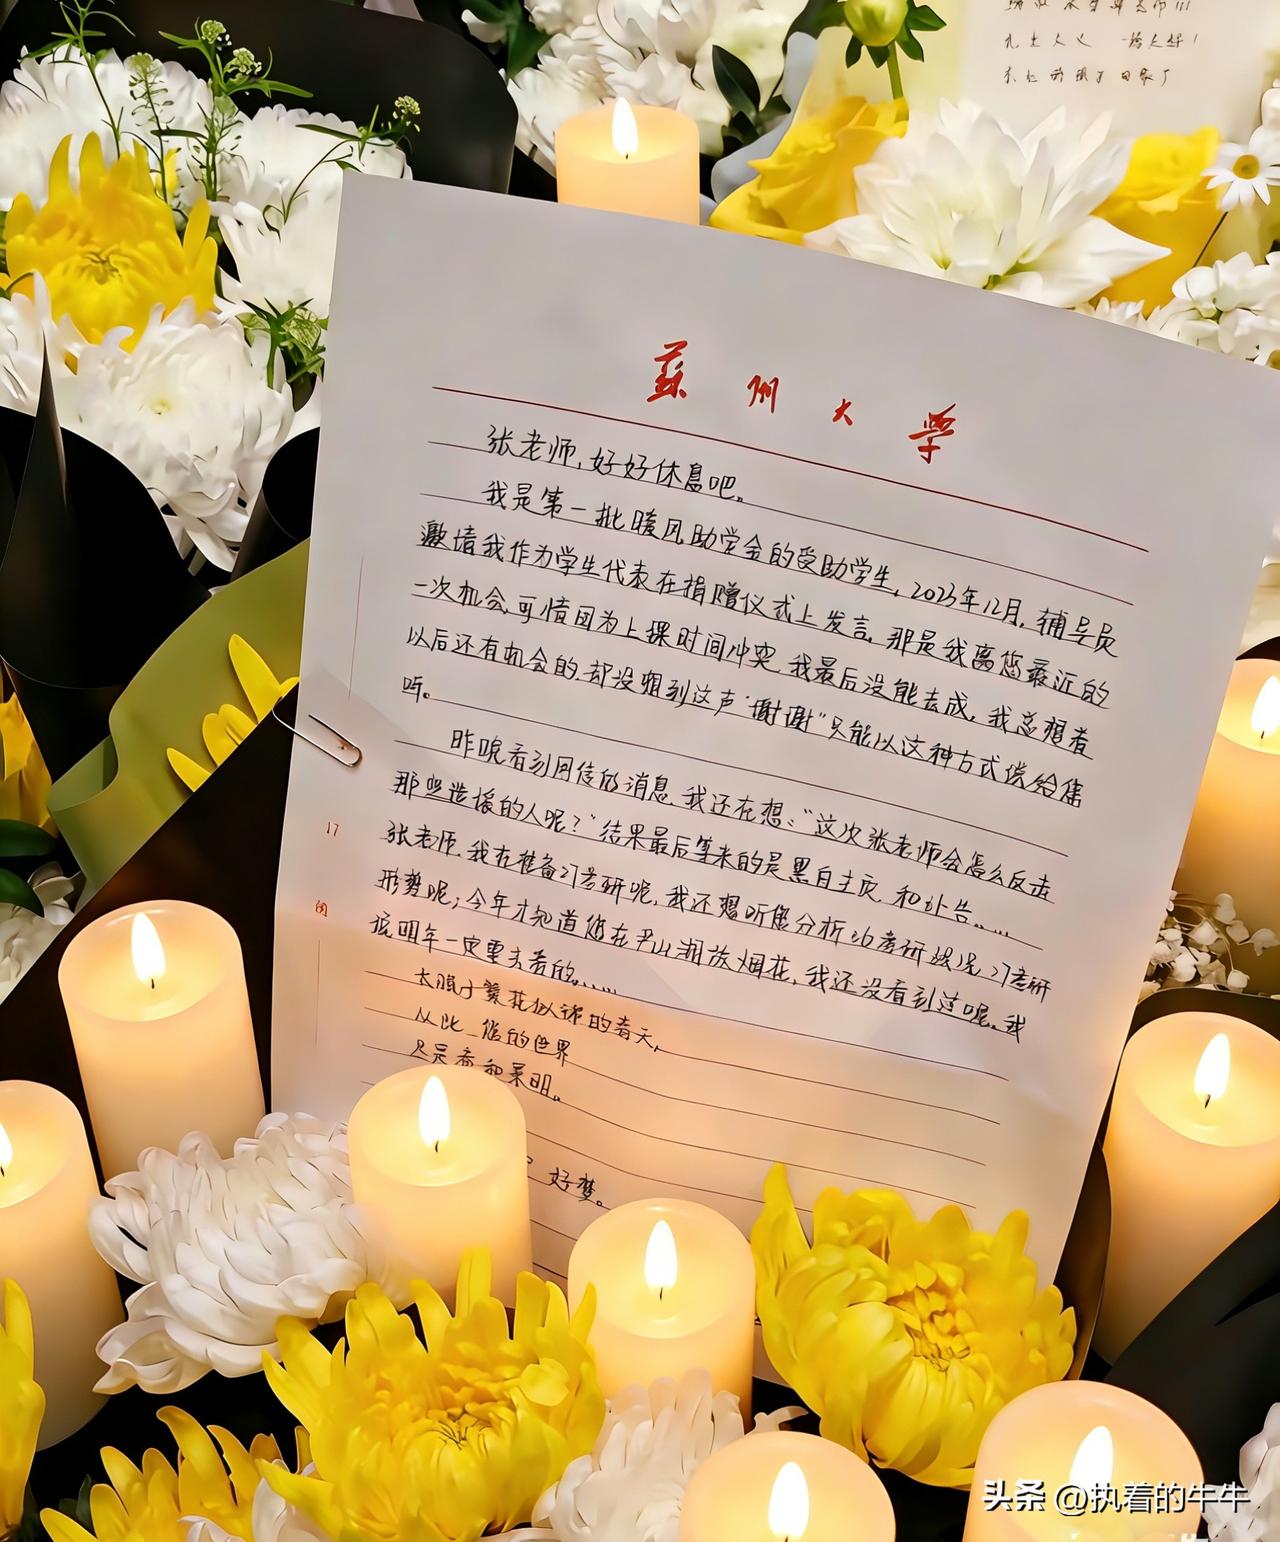 一路走好！
蘇州大学
张老师，好好休息吧。
我是第一批暖风助学金的受助学生，2023年12月，辅导员
邀请我作为学生代表在捐赠仪式上发言，那是我离您最近的
一次机会，可惜因为上课时间冲突，我最后没能去成，我总想着
以后还有机会的，却没想到这声“谢谢”只能以这种方式送给您
听。
昨晚看到网传的消息，我还在想：“这次张老师会怎么反击
那些造谣的人呢？”结果最后等来的是黑白主页，和讣告……
张老师，我在准备26考研呢，我还想听您分析26考研状况，27考研
形势呢；今年才知道您在尹山湖放烟花，我还没看到过呢，我
该明年一定要去看的……
太阳了葵花似锦的春天，
从此 您的世界
只是春和景明。
好梦。
17
头条 @执着的牛牛